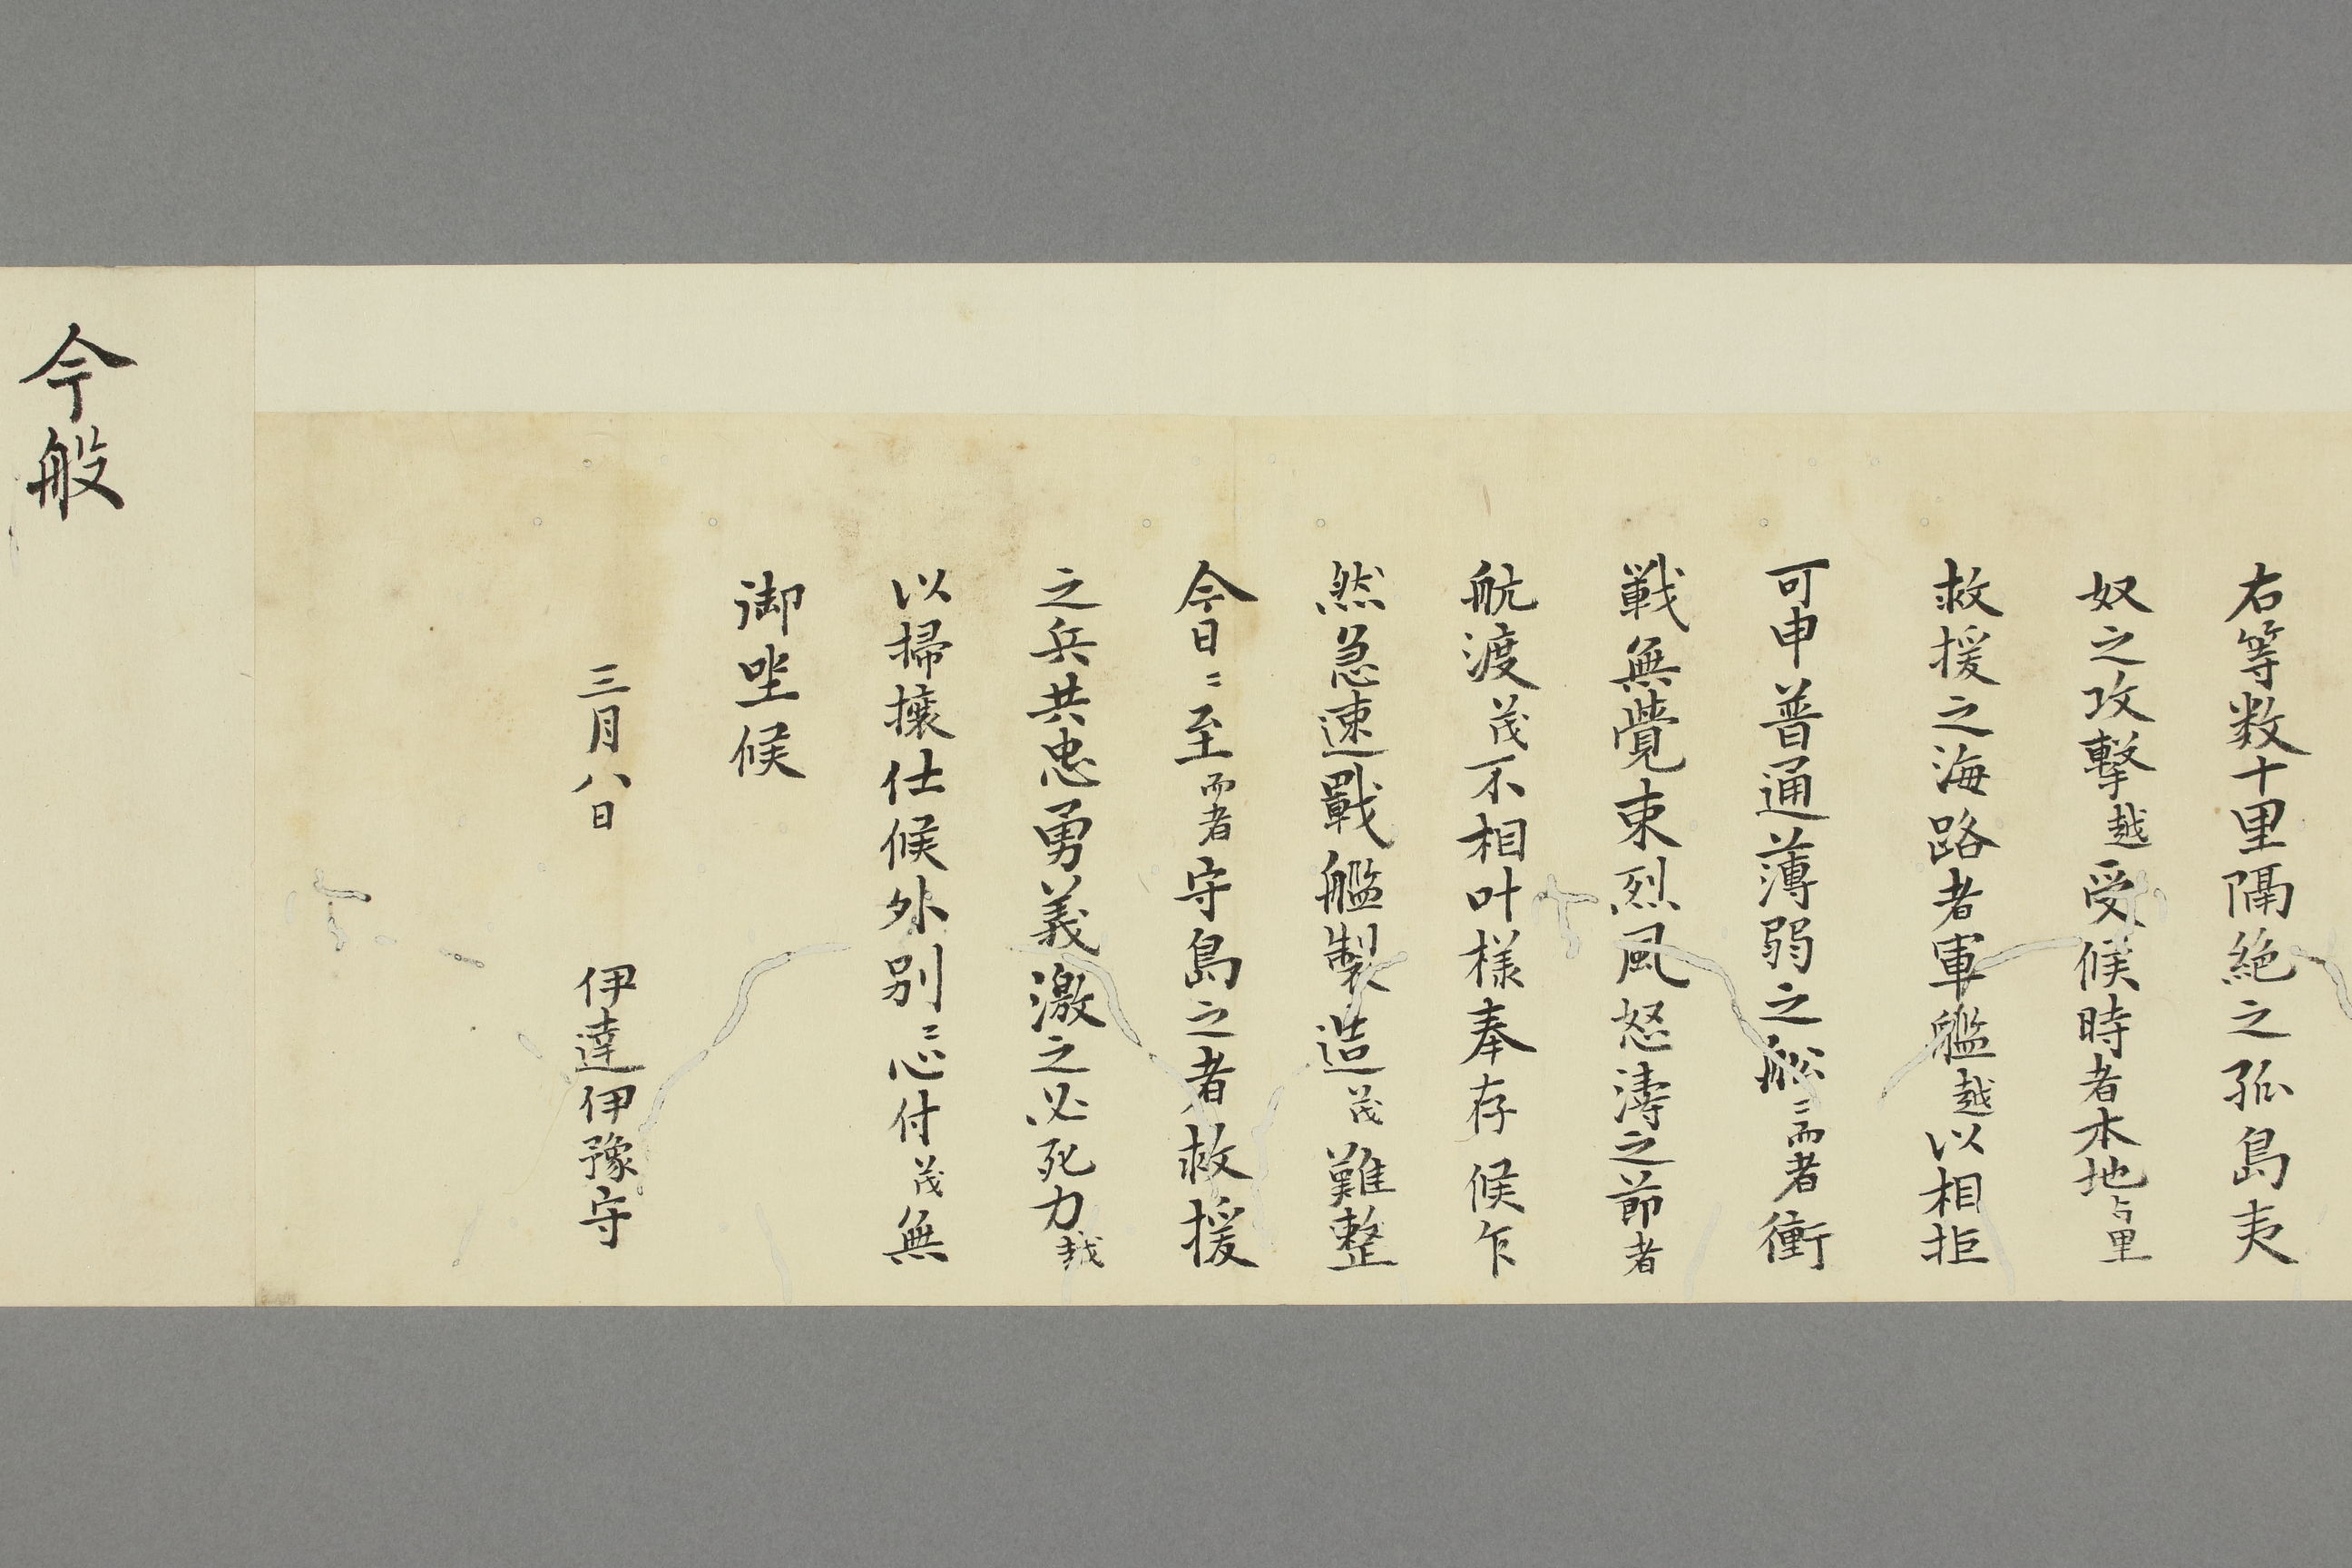 右等数十里隔絶之孤島夷
奴之攻撃越受候時者本地与里
救援之海路者軍艦越以相拒
可申普通薄弱之舩ニ而者衝
戦無覺束烈風怒濤之節者
航渡茂不相叶様奉存候乍
然急速戰艦製造茂難整
今日ニ至而者守島之者救援
之兵共忠勇義激之必死力越
以掃攘仕候外別ニ心付茂無
御坐候
三月八日 伊達伊豫守
今般